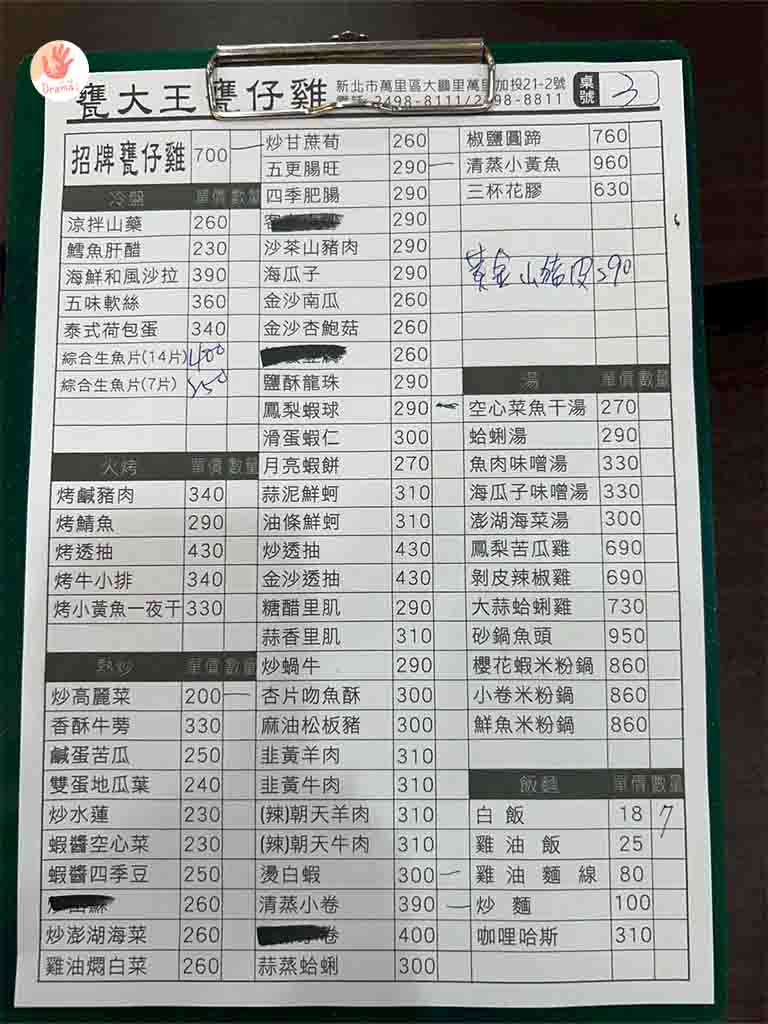 Drama
甕大王甕仔雞
新北市萬里區大鵬里萬里加投21-2號
桌號 3
招牌甕仔雞 700 一
冷盤 單價 數量
涼拌山藥 260
鱈魚肝醋 230
海鮮和風沙拉 390
五味軟絲 360
泰式荷包蛋 340
綜合生魚片(14片) 400
綜合生魚片(7片)
火烤 單價 數量
烤鹹豬肉 340
烤鯖魚 290
烤透抽 430
烤牛小排 340
烤小黃魚一夜干 330
熱炒 單價 數量
炒高麗菜 200 一
香酥牛蒡 330
鹹蛋苦瓜 250
雙蛋地瓜葉 240
炒水蓮 230
蝦醬空心菜 230
蝦醬四季豆 250
260
炒澎湖海菜 260
雞油燜白菜 260
炒甘蔗荀 260
五更腸旺 290 一
四季肥腸 290
290
沙茶山豬肉 290
海瓜子 290
金沙南瓜 260
金沙杏鮑菇 260
260
鹽酥龍珠 290
鳳梨蝦球 290 一
滑蛋蝦仁 300
月亮蝦餅 270
蒜泥鮮蚵 310
油條鮮蚵 310
炒透抽 430
金沙透抽 430
糖醋里肌 290
蒜香里肌 310
炒蝸牛 290
杏片吻魚酥 300
麻油松板豬 300
韭黃羊肉 310
韭黃牛肉 310
(辣)朝天羊肉 310
(辣)朝天牛肉 310
燙白蝦 300 一
清蒸小卷 390 一
卷 400
蒜蒸蛤蜊 300
椒鹽圓蹄 760
清蒸小黃魚 960
三杯花膠 630
黃金山豬皮
湯 單價 數量
空心菜魚干湯 270
蛤蜊湯 290
魚肉味噌湯 330
海瓜子味噌湯 330
澎湖海菜湯 300
鳳梨苦瓜雞 690
剝皮辣椒雞 690
大蒜蛤蜊雞 730
砂鍋魚頭 950
櫻花蝦米粉鍋 860
小卷米粉鍋 860
鮮魚米粉鍋 860
飯麵 單價 數量
白飯 18 7
雞油飯 25
雞油麵線 80
炒麵 100
咖哩哈斯 310